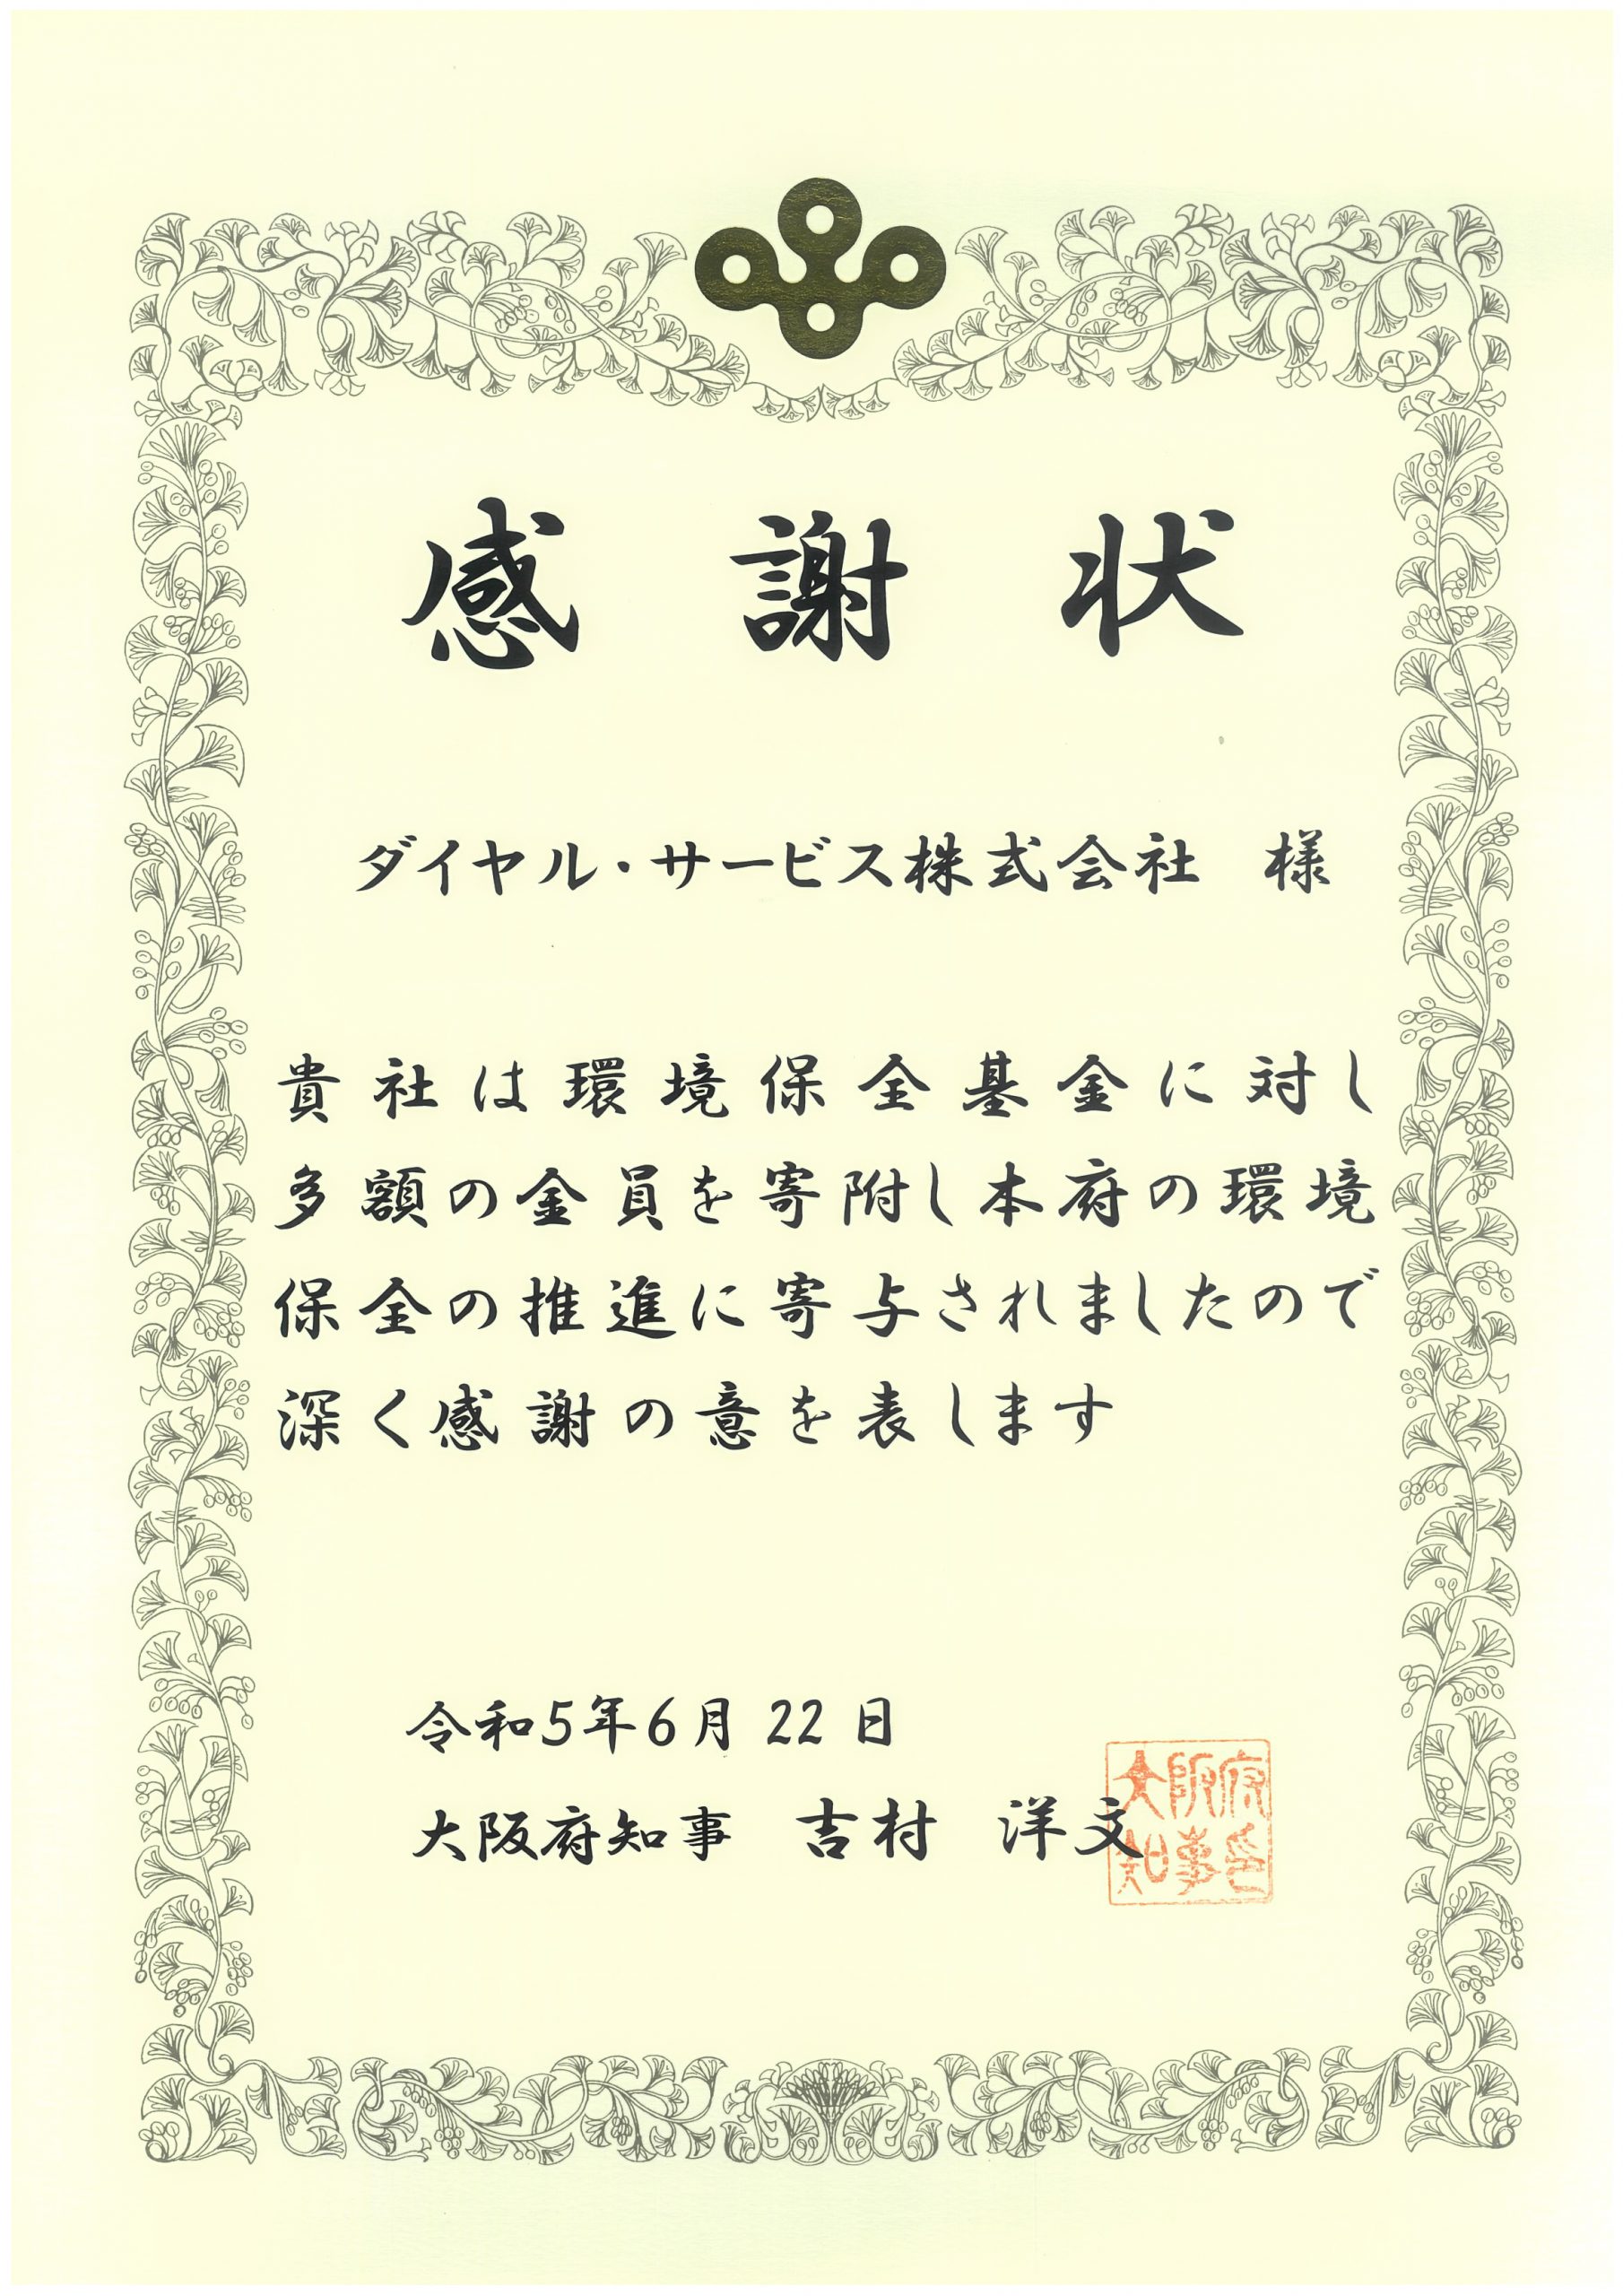 感謝状
ダイヤル・サービス株式会社 様
貴社は環境保全基金に対し
多額の金員を寄附し本府の環境
保全の推進に寄与されましたので
深く感謝の意を表します
令和5年6月22日
大阪府知事 吉村 洋文
大阪府
知事印